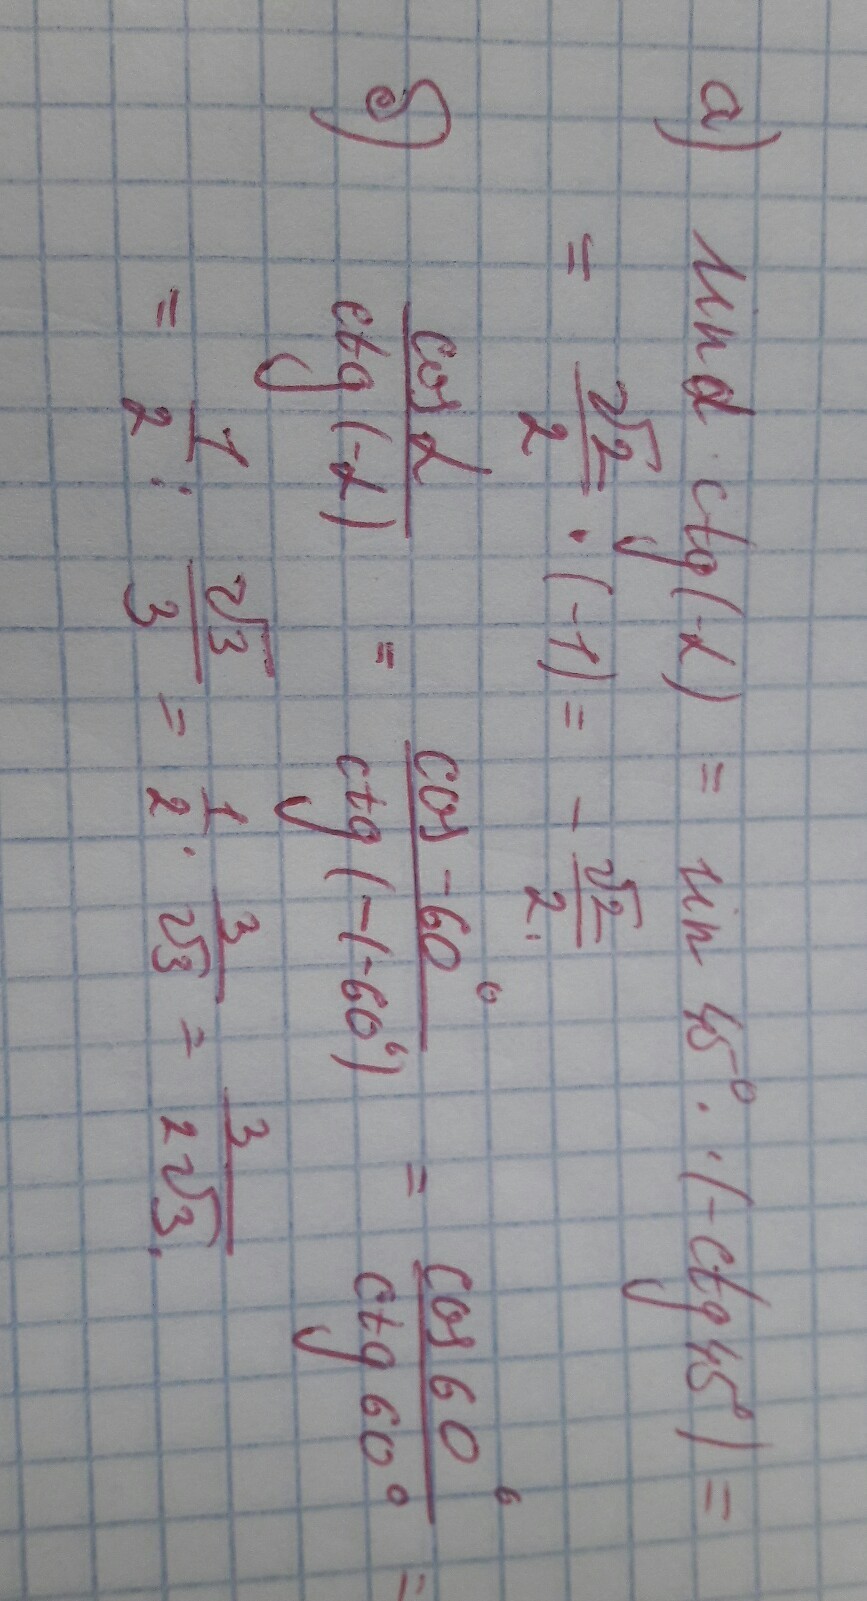 а) sin α · ctg(-α) = sin 45° · (-ctg 45°) =
= √2/2 · (-1) = - √2/2.
б) cos α / ctg(-α) = cos -60° / ctg(-(-60°) = cos 60° / ctg 60° =
= 1/2 : √3/3 = 1/2 · 3/√3 = 3/2√3.